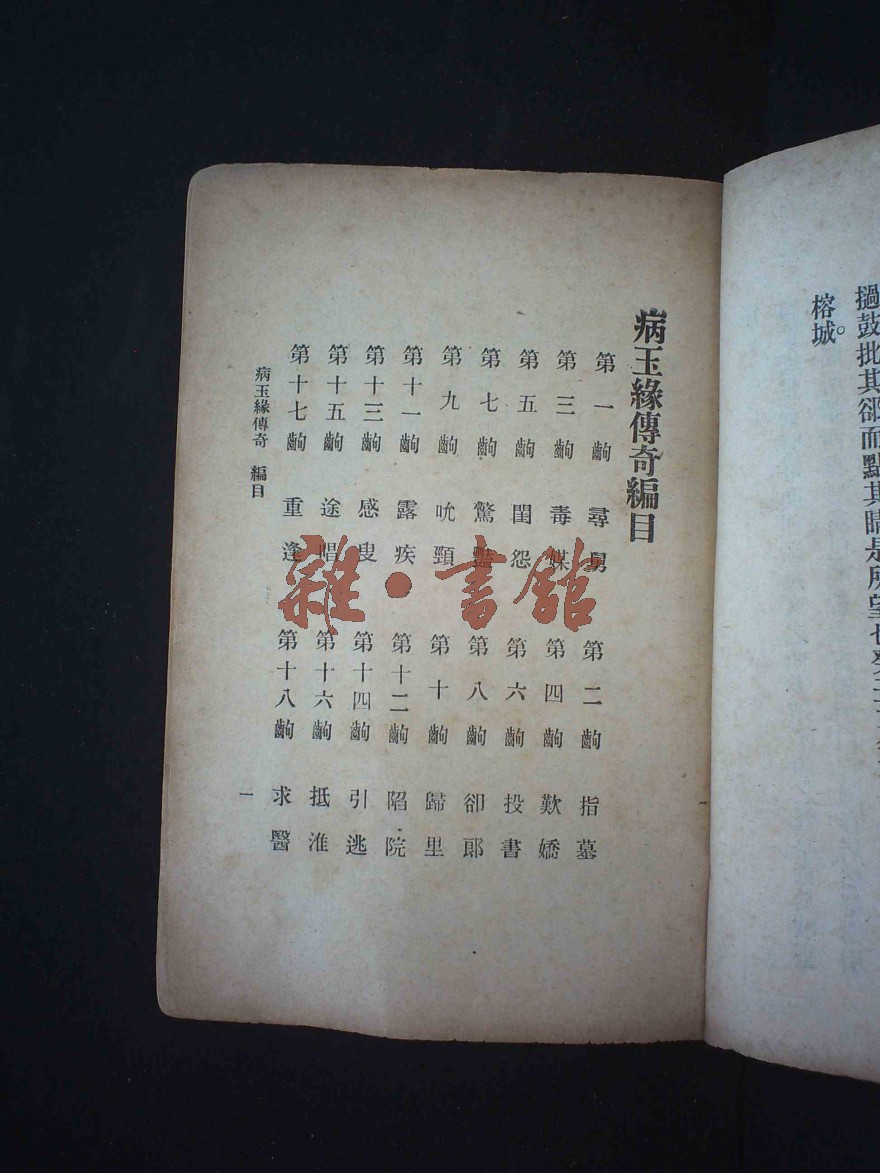 撾鼓批其郤而點其睛是所望也
榕城。
病玉緣傳奇編目
第一齣 尋舅 第二齣 指墓
第三齣 毒媒 第四齣 歎嬌
第五齣 閨怨 第六齣 投書
第七齣 驚豔 第八齣 卻郎
第九齣 吮頸 第十齣 歸里
第十一齣 露疾 第十二齣 陷院
第十三齣 感叟 第十四齣 引逃
第十五齣 途唱 第十六齣 抵淮
第十七齣 重逢 第十八齣 求醫
病玉緣傳奇 編目 一
雜·書館